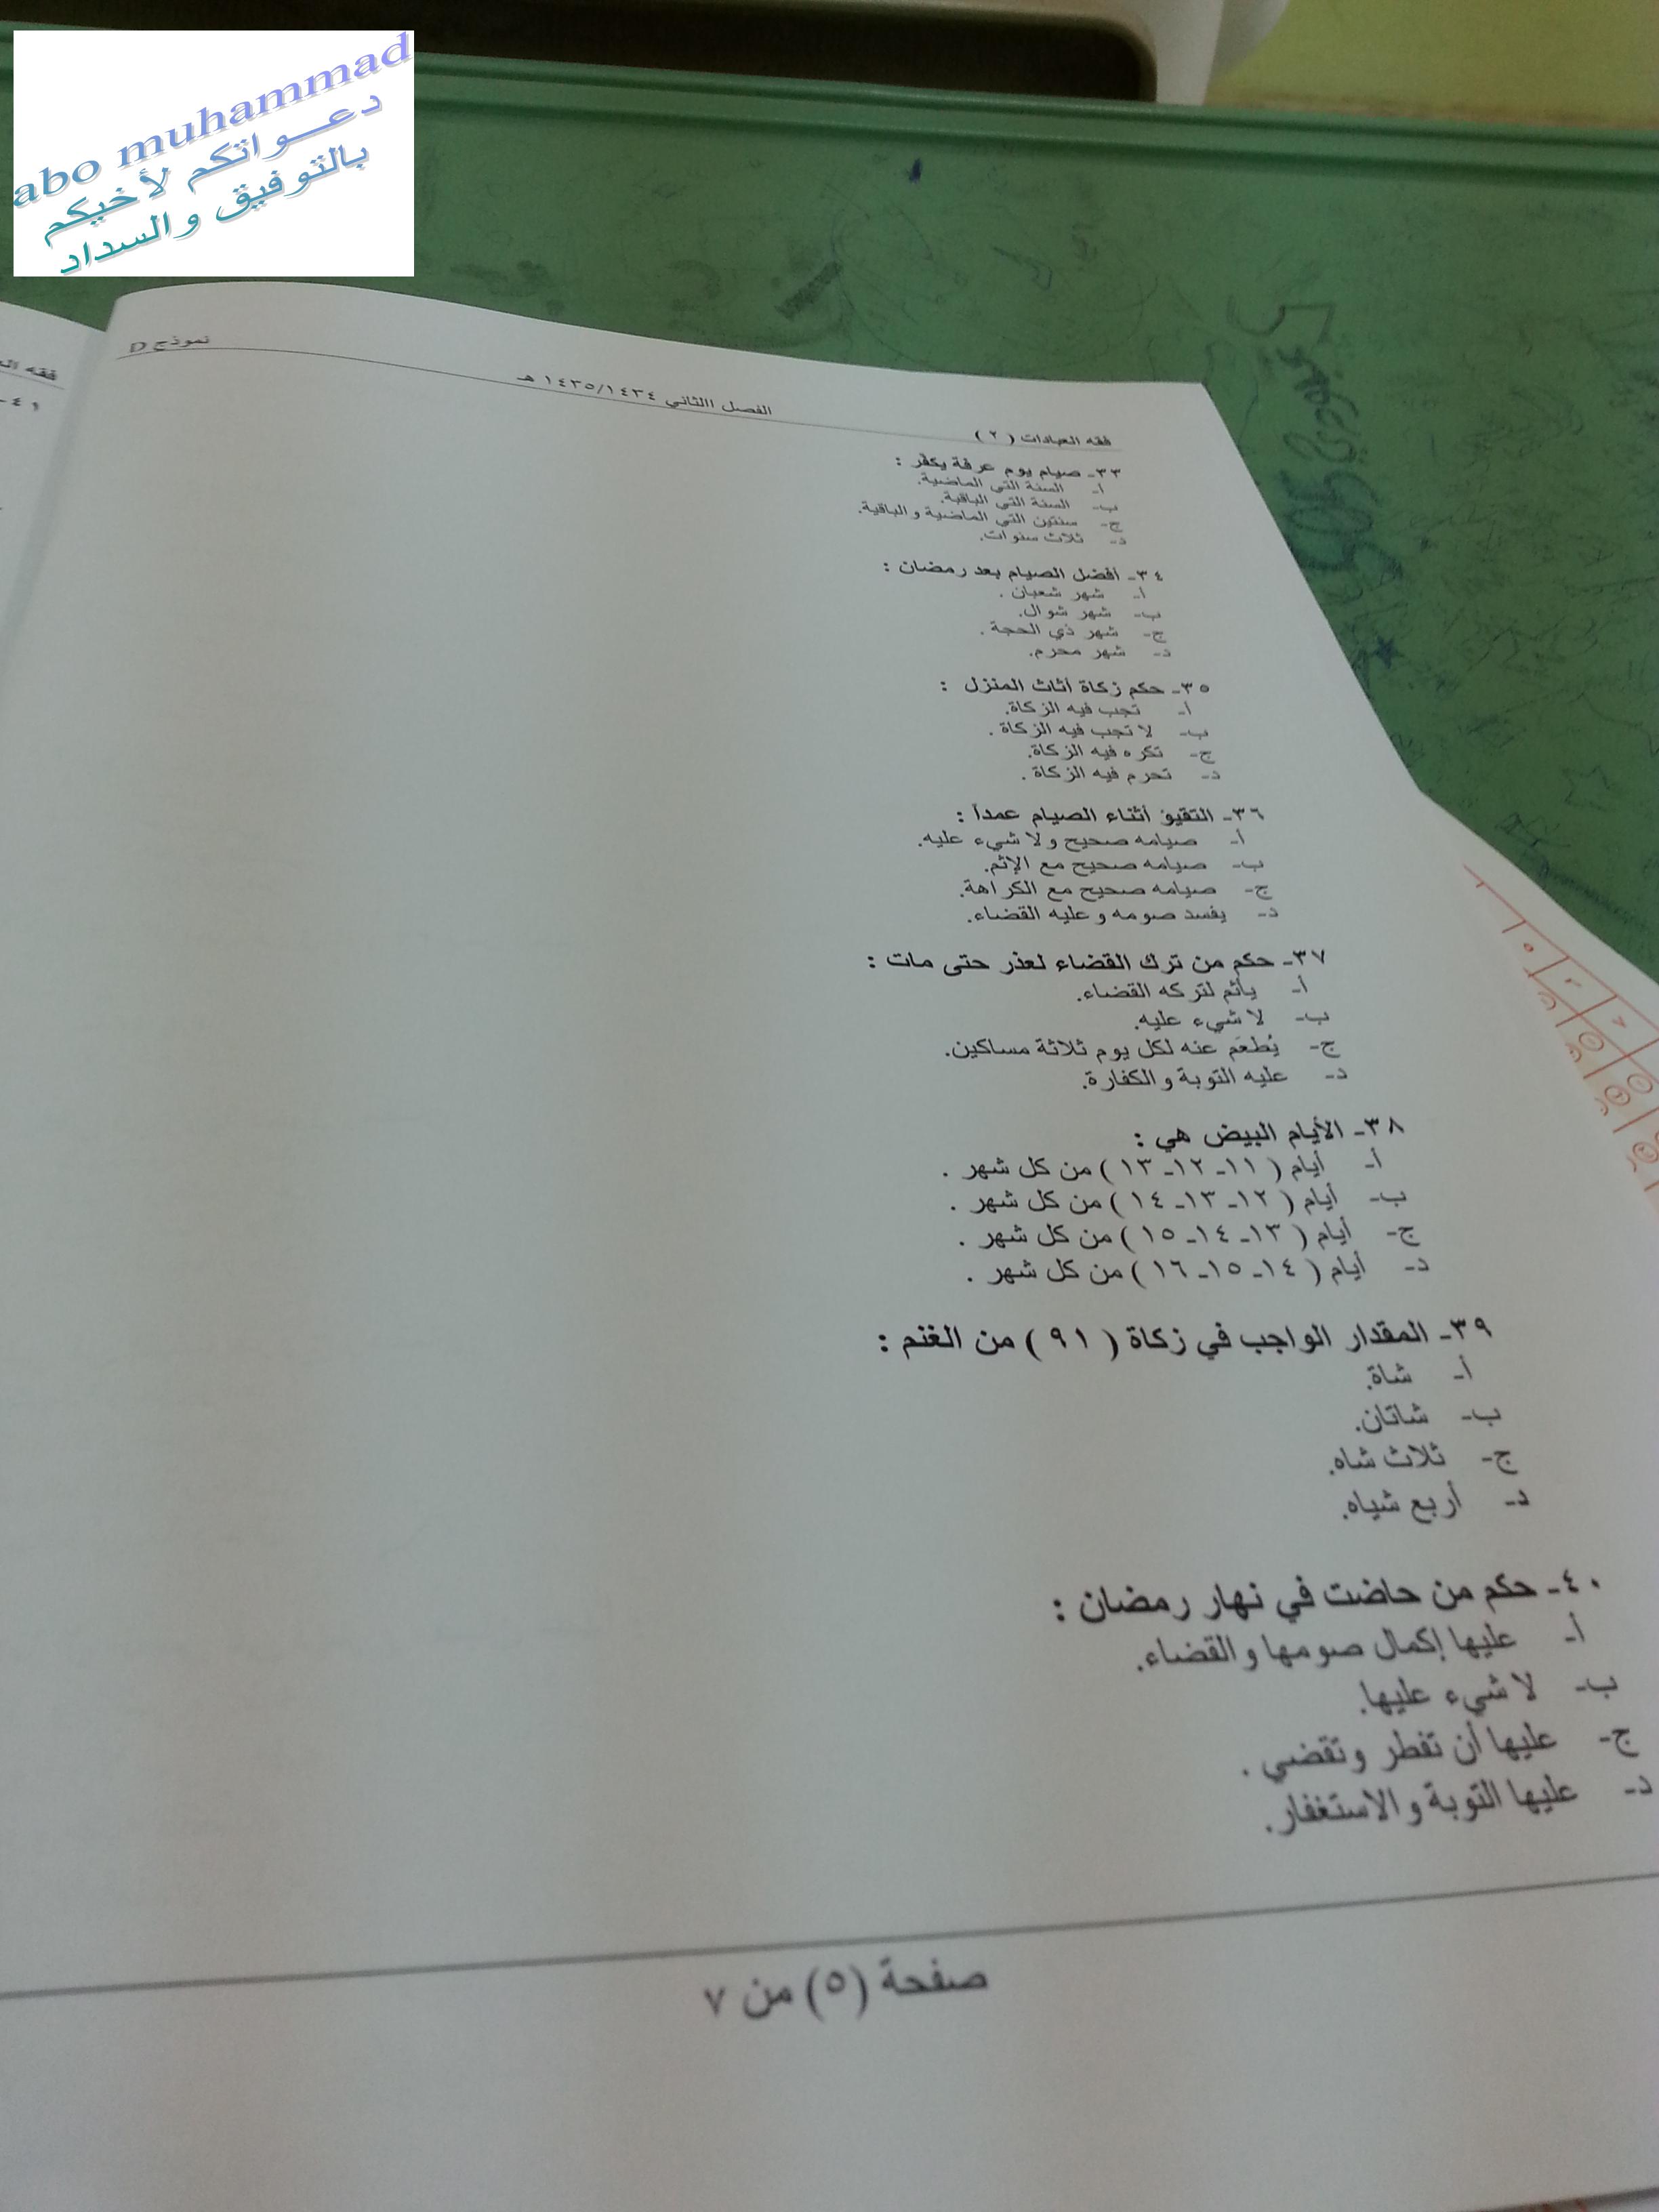 abo muhammad
دعـــواتكم لأخيكم
بالتوفيق والسداد
نموذج D
الفصل االثاني ١٤٣٤/١٤٣٥ هـ
فقه العبادات ( ٢ )
٣٣- صيام يوم عرفة يكفّر :
أ- السنة التي الماضية.
ب- السنة التي الباقية.
ج- سنتين التي الماضية والباقية.
د- ثلاث سنوات.
٣٤- أفضل الصيام بعد رمضان :
أ- شهر شعبان .
ب- شهر شوال.
ج- شهر ذي الحجة .
د- شهر محرم.
٣٥- حكم زكاة أثاث المنزل :
أ- تجب فيه الزكاة.
ب- لا تجب فيه الزكاة .
ج- تكره فيه الزكاة.
د- تحرم فيه الزكاة .
٣٦- التقيؤ أثناء الصيام عمداً :
أ- صيامه صحيح ولا شيء عليه.
ب- صيامه صحيح مع الإثم.
ج- صيامه صحيح مع الكراهة.
د- يفسد صومه وعليه القضاء.
٣٧- حكم من ترك القضاء لعذر حتى مات :
أ- يأثم لتركه القضاء.
ب- لا شيء عليه.
ج- يُطعَم عنه لكل يوم ثلاثة مساكين.
د- عليه التوبة والكفارة.
٣٨- الأيام البيض هي :
أ- أيام ( ١١- ١٢- ١٣ ) من كل شهر .
ب- أيام ( ١٢- ١٣- ١٤ ) من كل شهر .
ج- أيام ( ١٣- ١٤- ١٥ ) من كل شهر .
د- أيام ( ١٤- ١٥- ١٦ ) من كل شهر .
٣٩- المقدار الواجب في زكاة ( ٩١ ) من الغنم :
أ- شاة.
ب- شاتان.
ج- ثلاث شاه.
د- أربع شياه.
٤٠- حكم من حاضت في نهار رمضان :
أ- عليها إكمال صومها والقضاء.
ب- لا شيء عليها.
ج- عليها أن تفطر وتقضي .
د- عليها التوبة والاستغفار.
صفحة (٥) من ٧